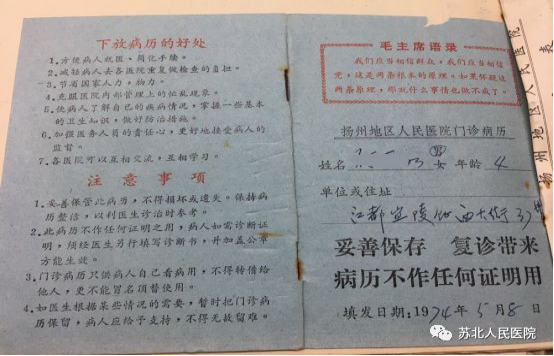 下放病历的好处
1.方便病人就医，简化手续。
2.减轻病人去各医院重复做检查的负担。
3.节省国家人力，物力。
4.克服医院内部管理上的忙乱现象。
5.使病人了解自己的疾病情况，掌握一些基本
的卫生知识，做好防治措施。
6.加强医务人员的责任心，更好地接受病人的
监督。
7.各医院可以互相交流，互相学习。
注意事项
1.妥善保管此病历，不得损坏或遗失。保持病
历整洁，以利医生诊治时参考。
2.此病历不作任何证明之用，病人如需诊断证
明，须经医生另行填写诊断书，并加盖公章
方能生效。
3.门诊病历只供病人自己看病用，不得转借给
他人，更不能冒名顶替使用。
4.如医生根据某些情况的需要，暂时把门诊病
历保留，病人应给予支持，不得无故留难。
毛主席语录
我们应当相信群众，我们应当相信
党，这是两条根本的原理。如果怀疑这
两条原理，那就什么事情也做不成了。
扬州地区人民医院门诊病历
姓名 男 女 年龄 4
单位或住址
江都宜陵
妥善保存 复诊带来
病历不作任何证明用
填发日期：1974年5月8日
苏北人民医院